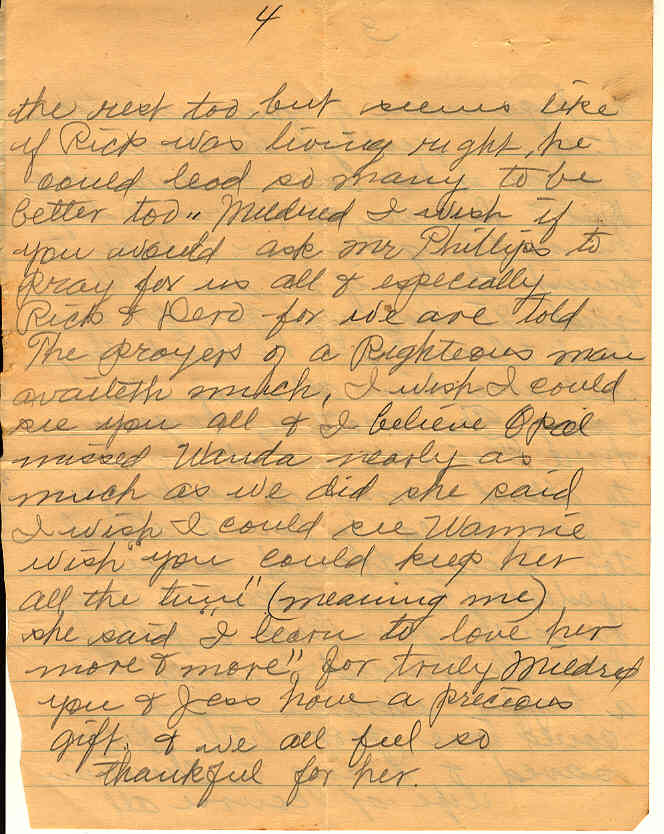 4
the rest too, but seems like
if Rick was living right, he
could lead so many to be
better too" Mildred I wish if
you would ask Mr Phillips to
pray for us all & especially
Rick & Dero for we are told
The prayers of a Righteous man
availeth much, I wish I could
see you all & I believe Opal
missed Wanda nearly as
much as we did she said
I wish I could see Wannie
wish "you could keep her
all the time" (meaning me)
she said "I learn to love her
more & more" for truly Mildred
you & Jess have a precious
gift. & we all feel so
thankful for her.